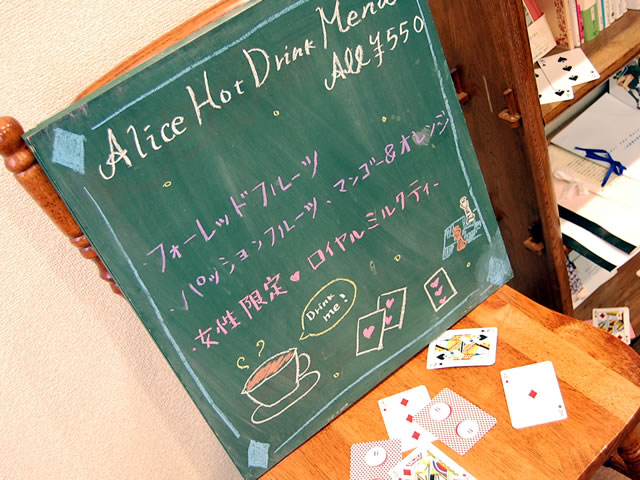 Alice Hot Drink Menu
All ¥550
・フォーレッドフルーツ
・パッションフルーツ、マンゴー&オレンジ
・女性限定♥ロイヤルミルクティー
Drink
me!